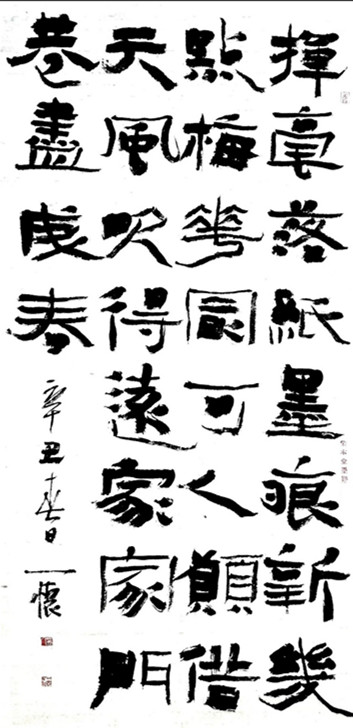 揮毫落紙墨痕新幾
點梅華冣可人願借
天風吹得遠家家門
巷盡成春
辛丑春日一懷